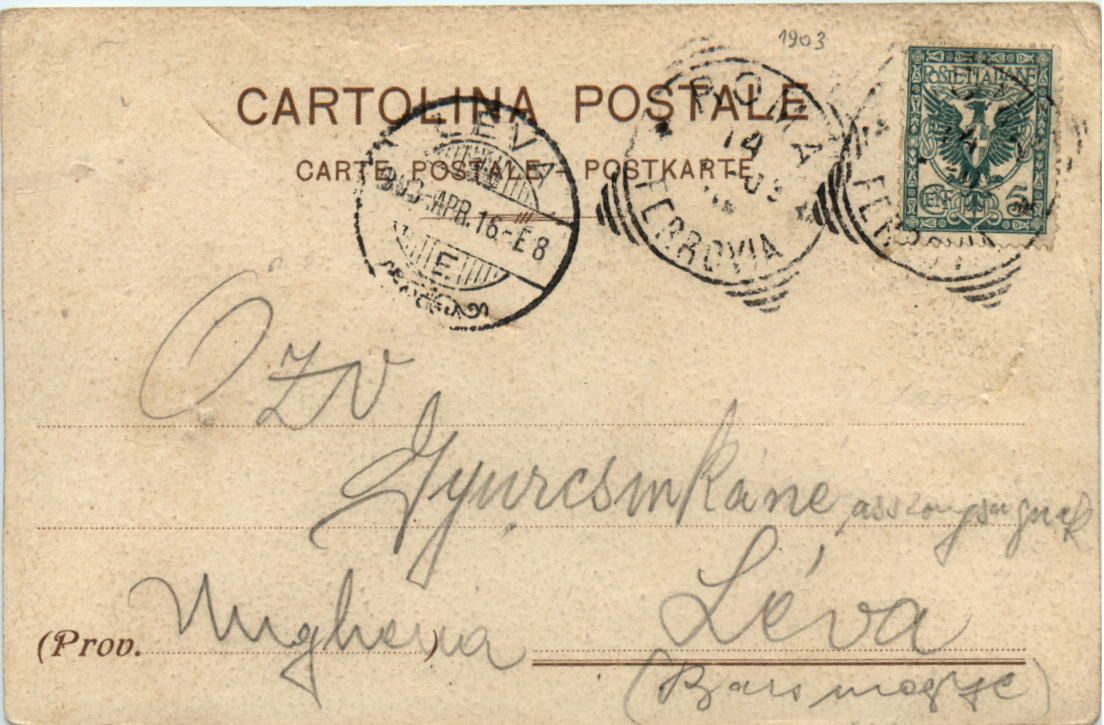 1903
CARTOLINA POSTALE
CARTE POSTALE - POSTKARTE
LÉVA
903 APR. 16 - E 8
E
ROMA
14
03
FERROVIA
POSTE ITALIANE
CENT 5
FERROVIA
Özv
Gyurcsinkáne asszonyságnak
Léva
(Prov. Ungheria)
(Barsmegye)